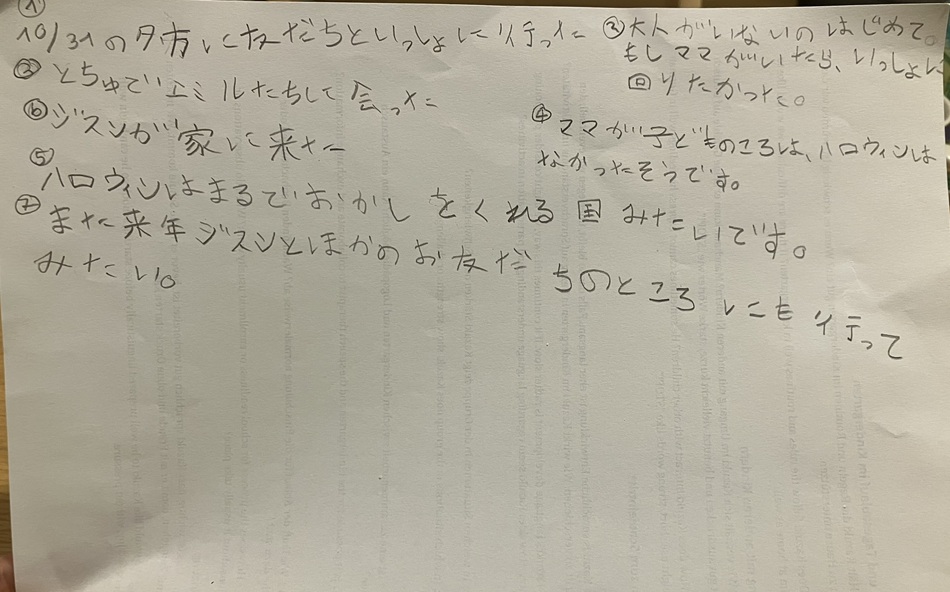 ①
10/31の夕方に友だちといっしょに行った
②大人がいないのはじめて。
もしママがいたら、いっしょに
回りたかった。
③とちゅでエミルたちに会った
⑥ジスンが家に来た
④ママが子どものころは、ハロウィンは
なかったそうです。
⑤
ハロウィンはまるでおかしをくれる国みたいです。
⑦また来年ジスンとほかのお友だちのところにも行って
みたい。